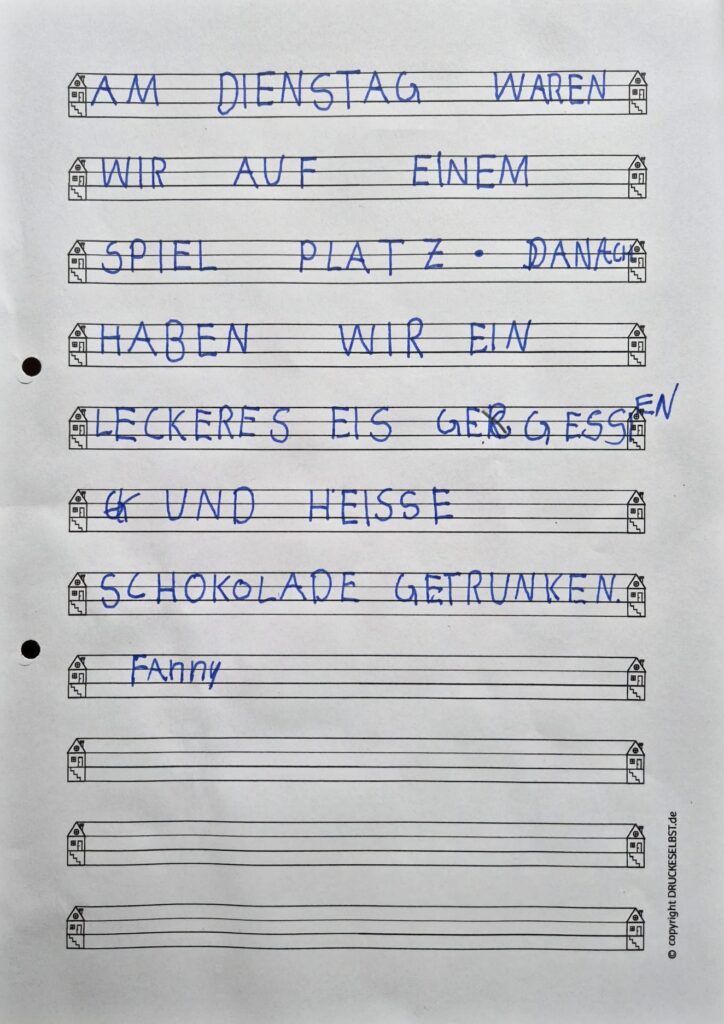 AM DIENSTAG WAREN
WIR AUF EINEM
SPIEL PLATZ. DANACH
HABEN WIR EIN
LECKERES EIS GEGESSEN
UND HEISSE
SCHOKOLADE GETRUNKEN.
FAnny
© copyright DRUCKESELBST.de